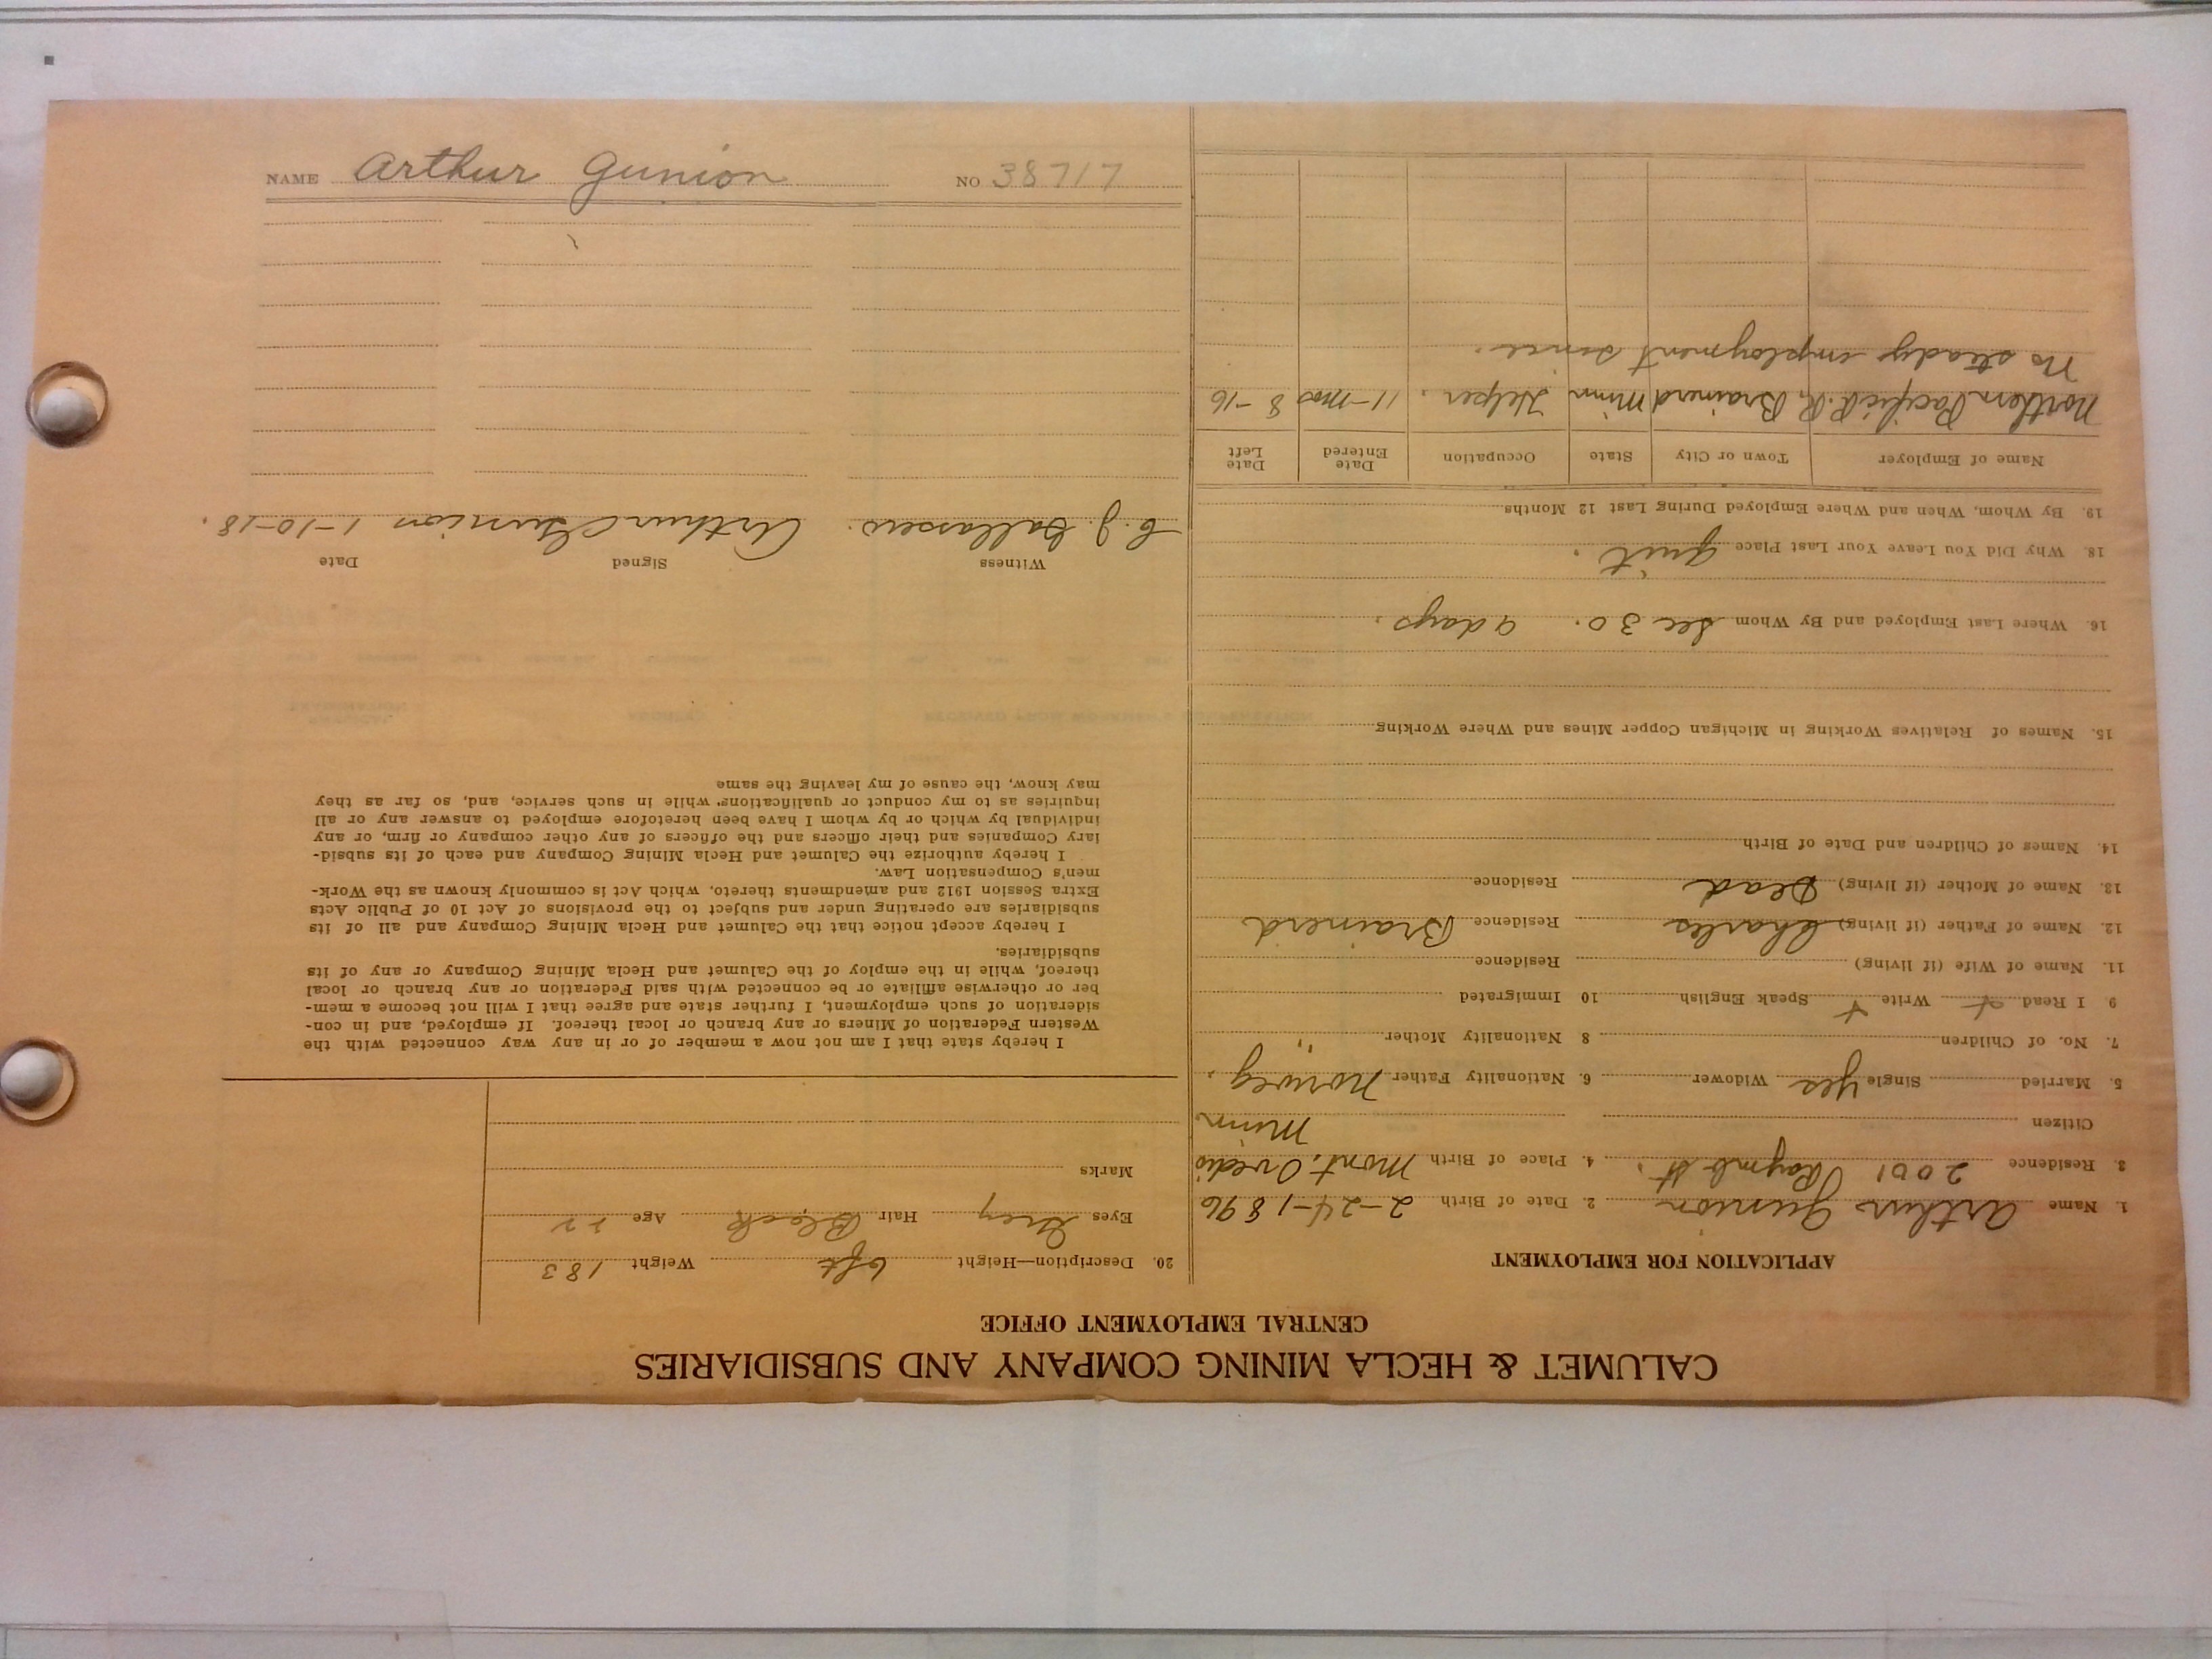 CALUMET & HECLA MINING COMPANY AND SUBSIDIARIES
CENTRAL EMPLOYMENT OFFICE
APPLICATION FOR EMPLOYMENT
1. Name Arthur Gunion 2. Date of Birth 2-24-1896
3. Residence 2001 St. 4. Place of Birth Mont. Ovedio
Citizen Minn
5. Married Single Yes Widower 6. Nationality Father Norweg.
7. No. of Children 8 Nationality Mother "
9 I Read + Write + Speak English 10 Immigrated
11. Name of Wife (if living) Residence
12. Name of Father (if living) Charles Residence Brainerd
13. Name of Mother (if living) Dead Residence
14. Names of Children and Date of Birth
15. Names of Relatives Working in Michigan Copper Mines and Where Working
16. Where Last Employed and By Whom Sec 30. 9 days.
18. Why Did You Leave Your Last Place quit.
19. By Whom, When and Where Employed During Last 12 Months
Name of Employer Town or City State Occupation Date Entered Date Left
Northern Pacific R.R. Brainerd Minn Helper. 11-mos 8-16
No steady employment since.
20. Description—Height 6ft Weight 183
Eyes Grey Hair Black Age 22
Marks
I hereby state that I am not now a member of or in any way connected with the
Western Federation of Miners or any branch or local thereof. If employed, and in con-
sideration of such employment, I further state and agree that I will not become a mem-
ber or otherwise affiliate or be connected with said Federation or any branch or local
thereof, while in the employ of the Calumet and Hecla Mining Company or any of its
subsidiaries.
I hereby accept notice that the Calumet and Hecla Mining Company and all of its
subsidiaries are operating under and subject to the provisions of Act 10 of Public Acts
Extra Session 1912 and amendments thereto, which Act is commonly known as the Work-
men's Compensation Law.
I hereby authorize the Calumet and Hecla Mining Company and each of its subsid-
iary Companies and their officers and the officers of any other company or firm, or any
individual by which or by whom I have been heretofore employed to answer any or all
inquiries as to my conduct or qualifications while in such service, and, so far as they
may know, the cause of my leaving the same
Witness Signed Date
C. J. Arthur Gunion 1-10-18.
NAME Arthur Gunion NO 38717